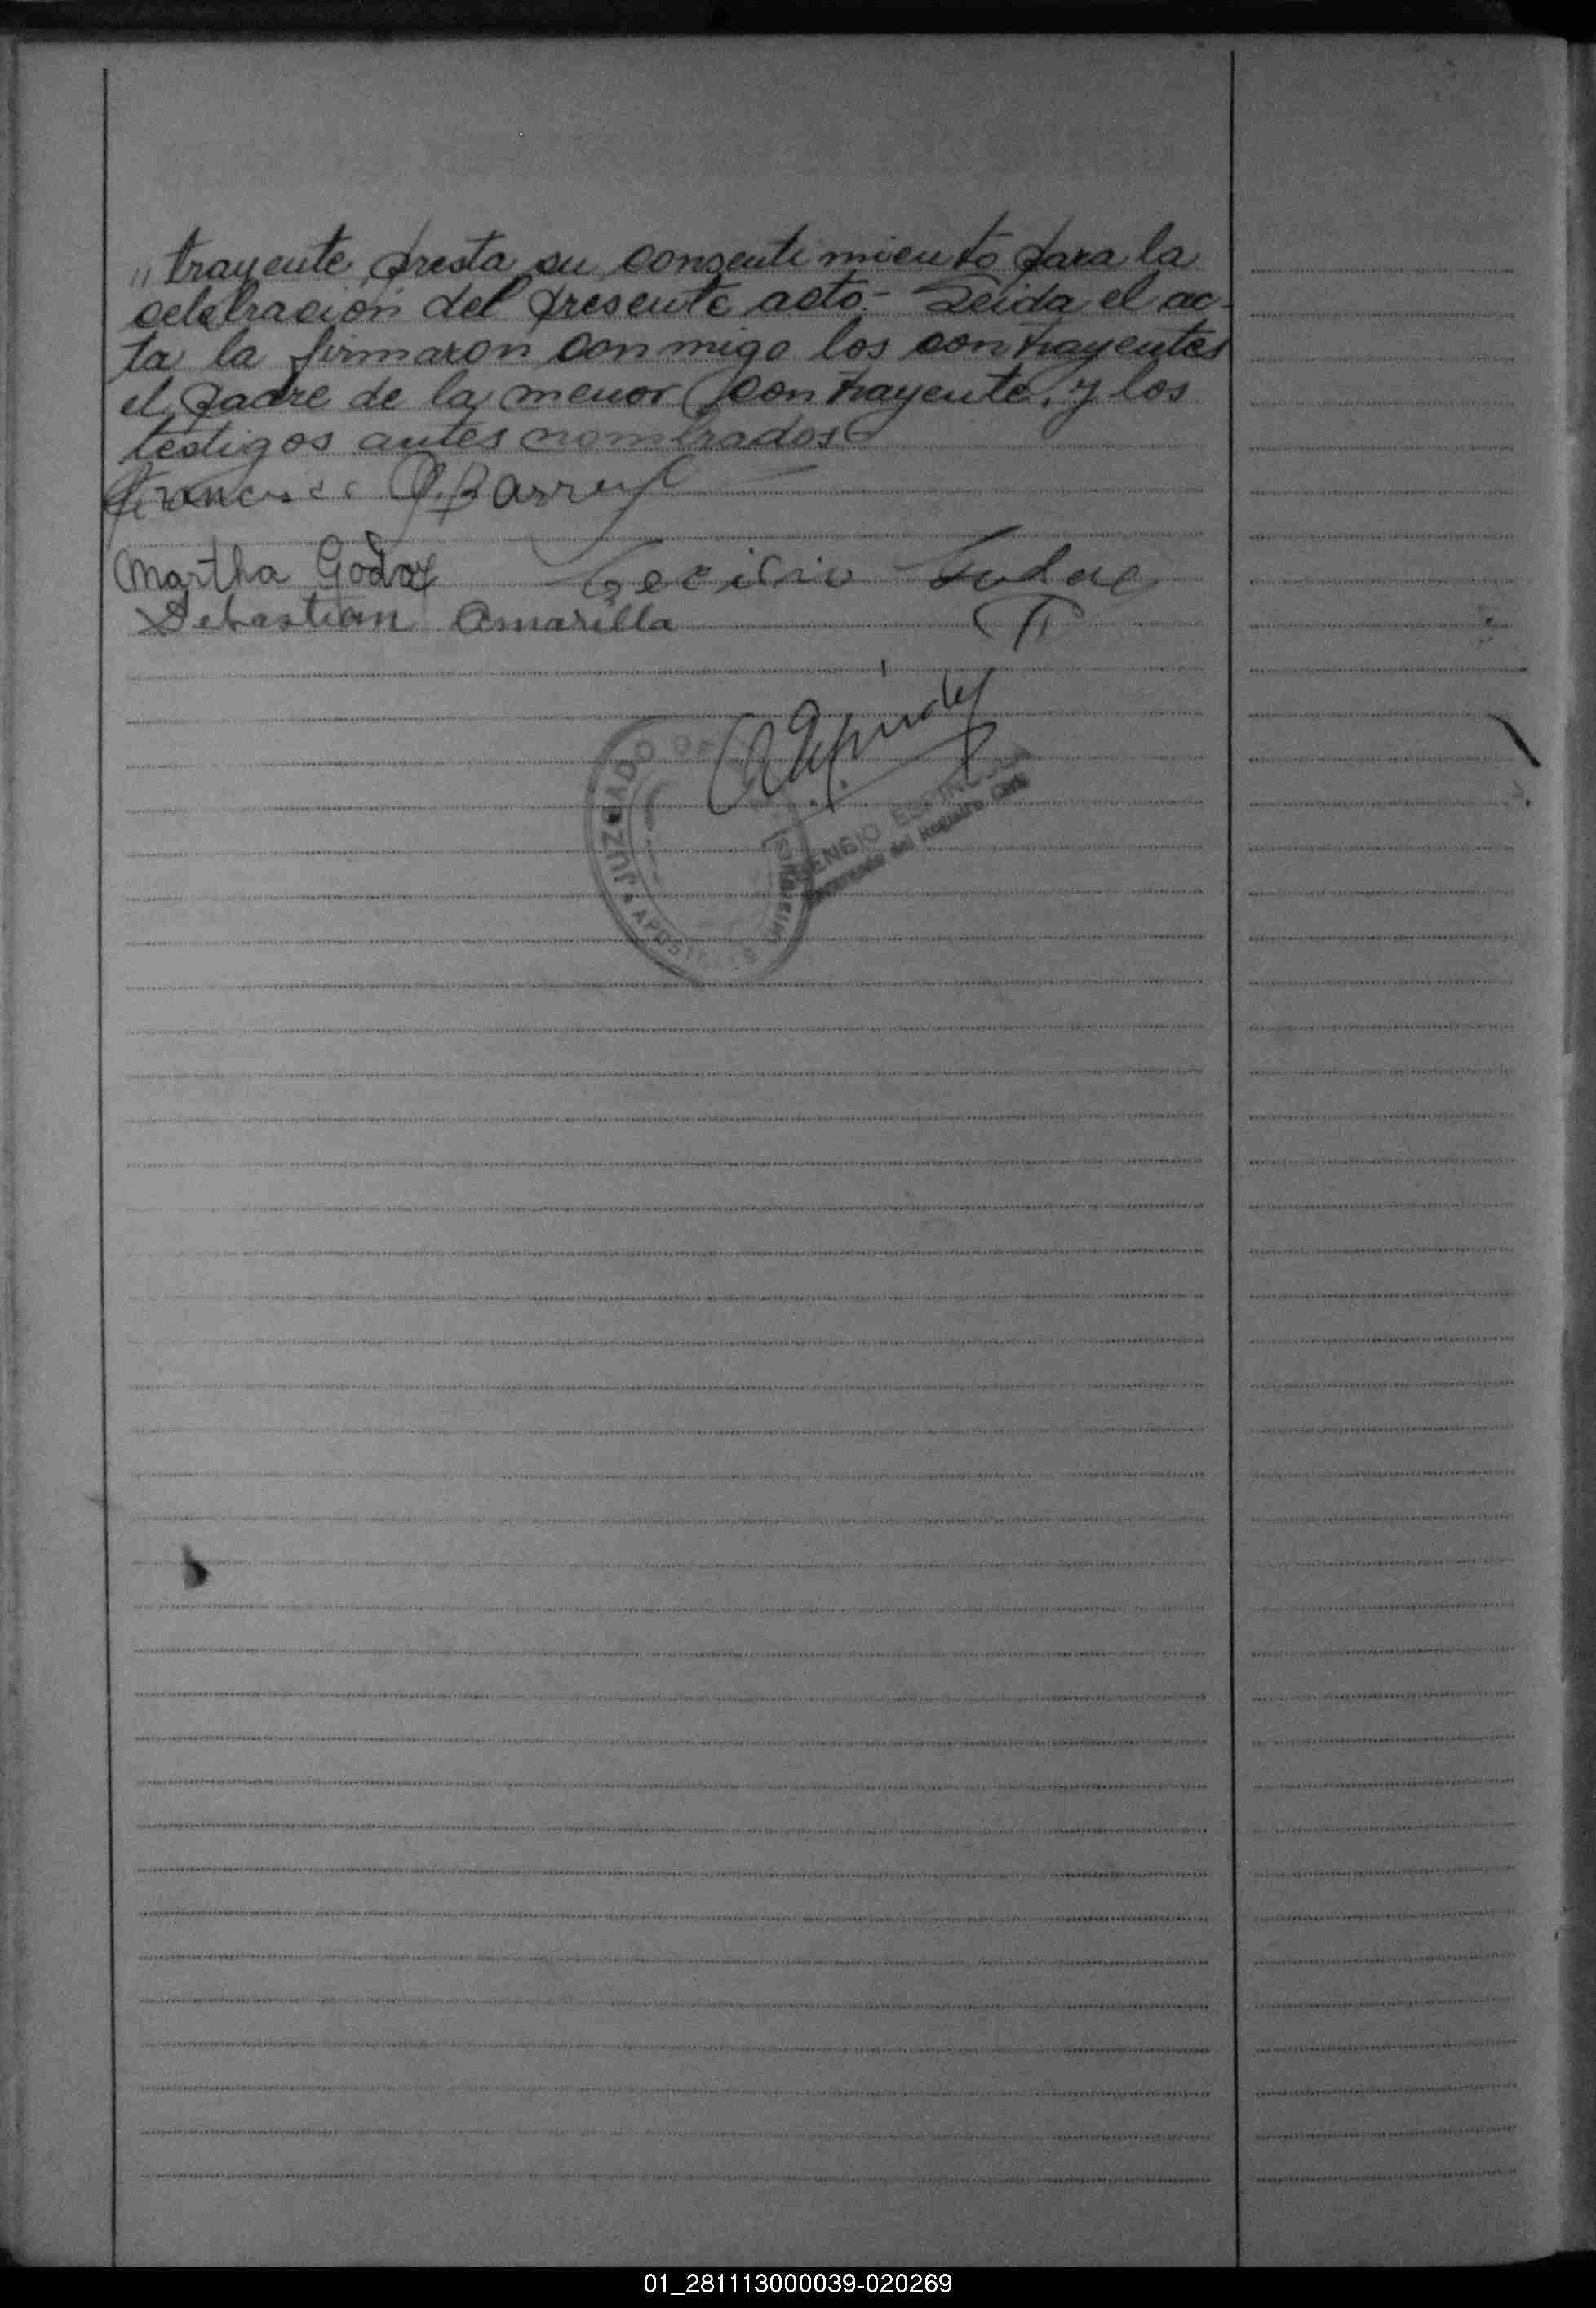 " trayente, presta su consentimiento para la
celebración del presente acto.- Leida el ac-
ta la firmaron conmigo los contrayentes
el padre de la menor contrayente, y los
testigos antes nombrados
Martha Godoy
Sebastian Amarilla
JUZGADO DE
APOSTOLES
MISIONES
Encargado del Registro Civil
01_281113000039-020269